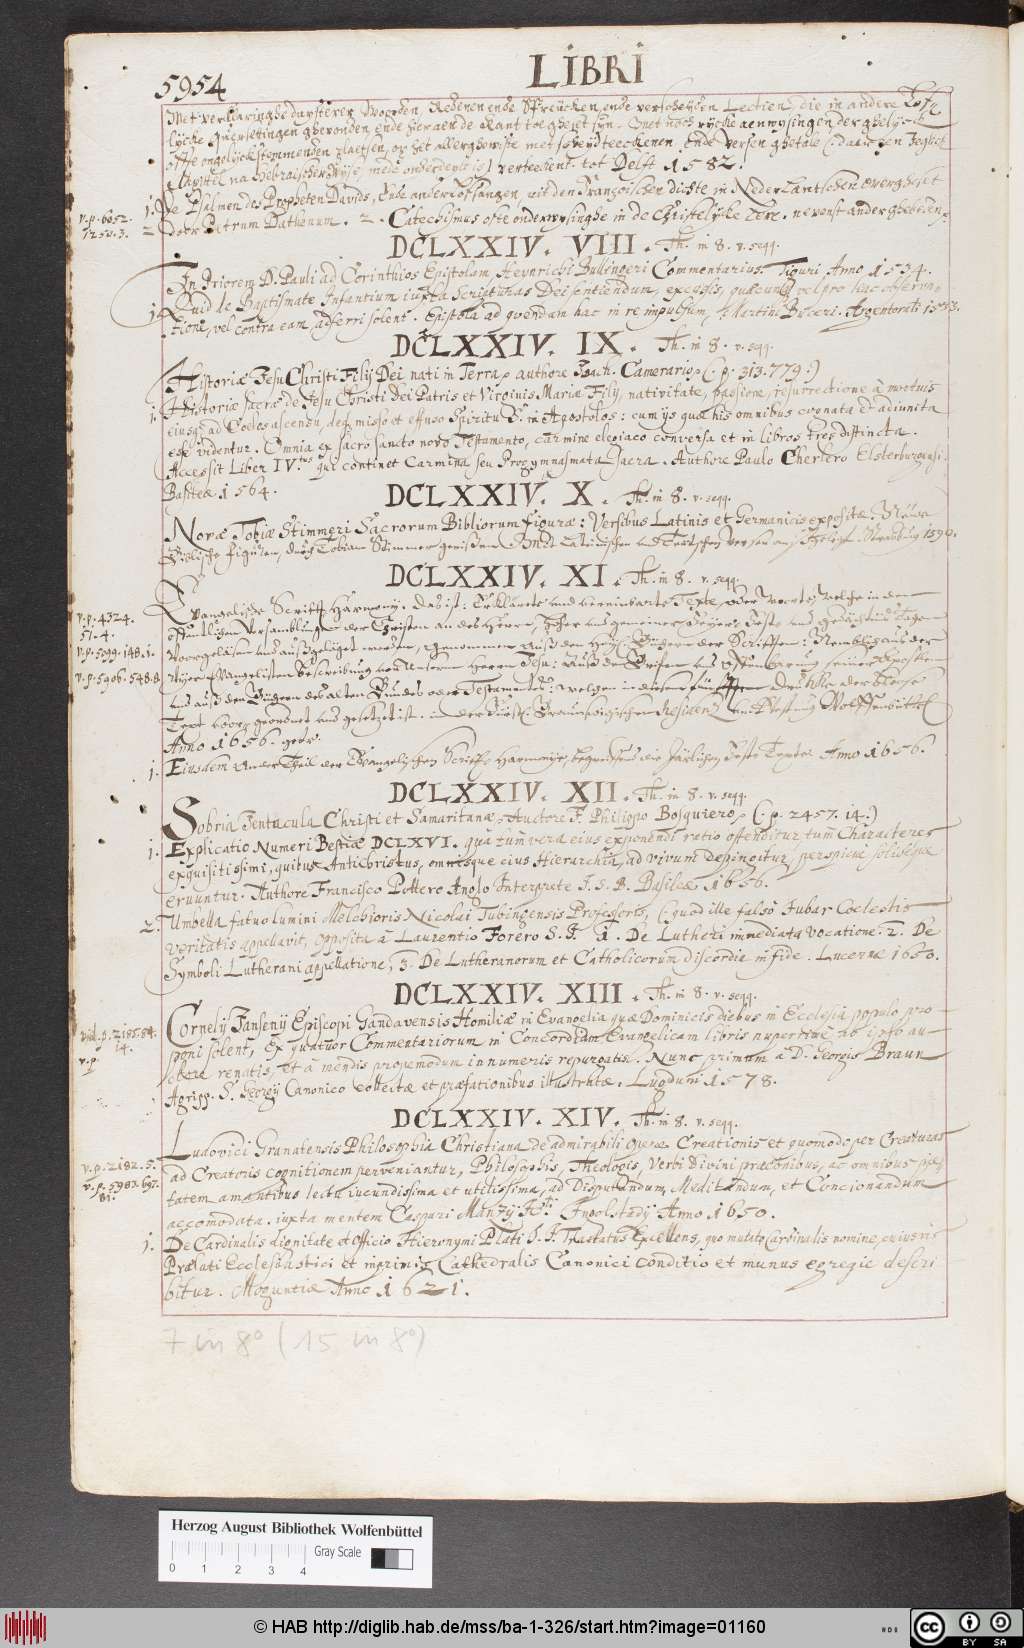 5954
LIBRI
Met verklaringhe duysterer Woorden, Redenen ende Spreucken, ende verscheyden Lectien, die in andere
lycke Overset­tingen ghevonden ende hier aen de cant toe gheset syn. Met noch rycke aenwysingen der ghelyck
ofte ongelyck stemmenden plaetsen, op het
Capittel na Hebraischer Wyse, mede onderdeylt is) verteeckent. tot Delft 1582.
v. p. 6052.
1. De Psalmen des Propheten Davids, Ende andere Lofsangen, uit den Françoischen dichte in Nederlantschen overgheset
door Petrum Dathenum. 2. Catechismus ofte onderwysinghe in de Christelycke Lere, nevenst ander ghebeden
DCLXXIV. VIII. Th. in 8. v. seqq.
In Priorem D. Pauli ad Corinthios Epistolam Heynrichi Bullingeri Commentarius. Tiguri Anno 1534.
1. Quid de Baptismate Infantium iuxta Scripturas Dei sentiendum, excussis, quaecunq vel pro hac observa-
tione, vel contra eam, adferri solent. Epistola ad quendam hac in re impulsum, Martini Buceri. Argentorati 1533.
DCLXXIV. IX. Th. in 8. v. seqq.
Historiæ Jesu Christi Filij Dei nati in Terra, authore Joach. Camerario (. p. 313. 779.)
1. Historiæ sacræ de Jesu Christi Dei Patris et Virginis Mariæ Filij, nativitate, passione, resurrectione à mortuis
eiusq. ad Coelos ascensu, deq. misso et effuso Spiritu S. in Apostolos: cum ijs quæ his omnibus cognata et adiuncta
esse videntur. Omnia ex sacrosancto novo Testamento, carmine elegiaco conversa et in libros tres distincta.
Accessit Liber IV.tus qui continet Carmina seu Progymnasmata Sacra. Authore Paulo Cherlero Elsterburgensi.
Basileæ 1564.
DCLXXIV. X. Th. in 8. v. seqq.
Novæ Tobiæ Stimmeri Sacrorum Bibliorum figuræ: Versibus Latinis et Germanicis expositæ.
Biblische Figuren, durch Tobiam Stimmer gerissen 1590.
DCLXXIV. XI. Th. in 8. v. seqq.
v. p. 4324.
51. 4.
v. p. 5099. 148. 1.
v. p. 5906. 548. 8
Evangelische Schrifft Harmony. Das ist: Erklärete und vereinbarte Texte, oder Worte, welche in den
öffentlichen Versamblungen der Christen an des Herrn,
Vorgelesen und außgeleget werden, genommen auß den Büchern der Schrifften:
Evangelisten Beschreibung von Unserem Herrn Jesu:
und auß den Büchern des alten Bundes oder Testamentes:
Text geordnet und gesetzet ist. in der Fürstl. Braunschweigischen Residentz und Vestung Wolffenbüttel
Anno 1656. gedr.
1. Eiusdem Ander Theil der Evangelischen Schrifft Harmonye, Anno 1656.
DCLXXIV. XII. Th. in 8. v. seqq.
Sobria Jentacula Christi et Samaritanæ. Auctore F. Philippo Bosquiero, (. p. 2457. 14.)
1. Explicatio Numeri Bestiæ DCLXVI. qua tum vera eius exponendi ratio ostenditur, tum Characteres
exquisitissimi, quibus Antichristus, omnisque eius Hierarchia, ad vivum depingitur, perspicuè solidéque
eruuntur. Authore Francisco Pottero Anglo Interprete J. S. B. Basileæ 1656.
2. Umbella fatuo lumini Melchioris Nicolai Tubingensis Professoris, (. quod ille falso Jubar Coelestis
veritatis appellavit, opposita à Laurentio Forero S. J. 1. De Lutheri immediata vocatione. 2. De
Symboli Lutherani appellatione, 3. De Lutheranorum et Catholicorum discordia in fide. Lucernæ 1650.
DCLXXIV. XIII. Th. in 8. v. seqq.
vid. p. 2185. 84.
v. p. 14.
Cornelij Jansenij Episcopi Gandavensis Homiliæ in Evangelia quæ Dominicis diebus in Ecclesia populo pro-
poni solent, Ex quatuor Commentariorum in Concordiam Evangelicam libris nuperrimè ab ipso au-
thore renatis, et à mendis propemodum innumeris repurgatis. Nunc primum à D. Georgio Braun
Agripp. S. Georgij Canonico collectæ et præfationibus illustratæ. Lugduni 1578.
DCLXXIV. XIV. Th. in 8. v. seqq.
v. p. 2182. 5.
v. p. 5983. 697.
81.
Ludovici Granatensis Philosophia Christiana de admirabili opere Creationis et quomodo per Creaturas
ad Creatoris cognitionem perveniantur, Philosophis, Theologis, Verbi Divini præconibus, ac omnibus pie-
tatem amantibus lectu iucundissima et utilissima, ad Disputandum, Meditandum, et Concionandum
accomodata. iuxta mentem Caspari Manzij Ingolstadij Anno 1650.
1. De Cardinalis dignitate et officio Hieronymi Plati S. J. Tractatus Excellens, quo mutato Cardinalis nomine, cuiusvis
Prælati Ecclesiastici et inprimis Cathedralis Canonici conditio et munus egregie descri
bitur. Moguntiæ Anno 1621.
7 in 8° (15 in 8°)
Herzog August Bibliothek Wolfenbüttel
Gray Scale
0 1 2 3 4
© HAB http://diglib.hab.de/mss/ba-1-326/start.htm?image=01160
cc BY SA